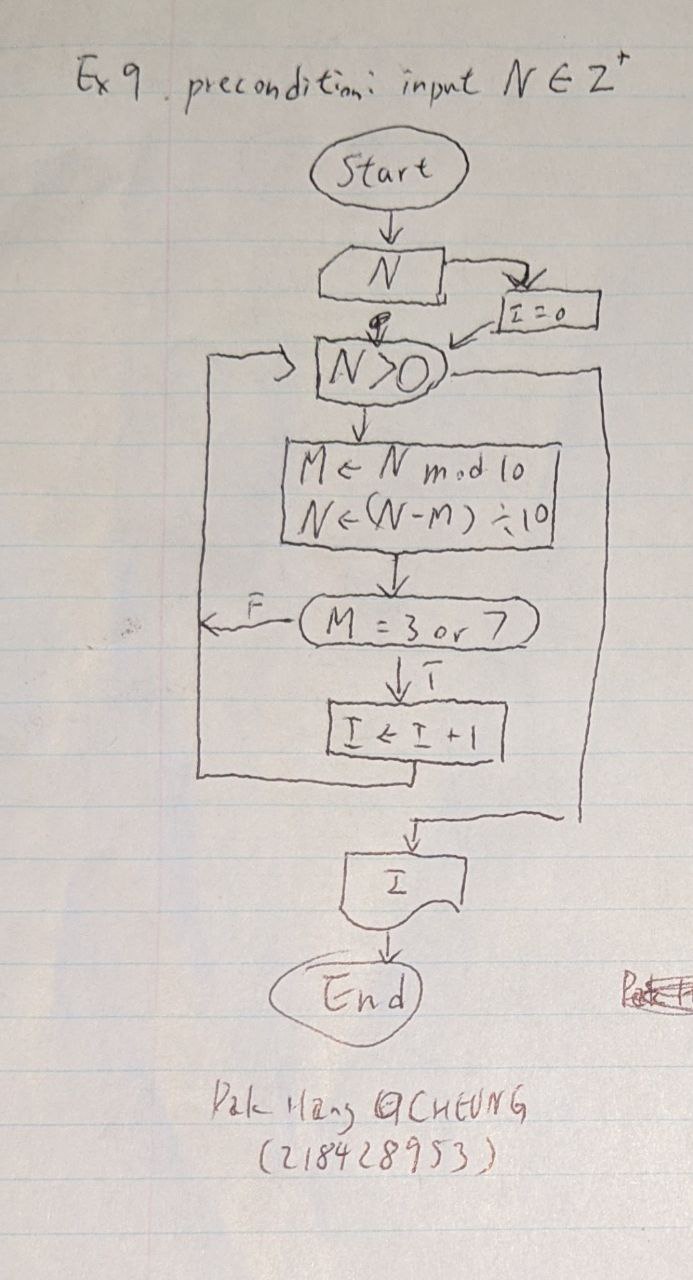 Ex 9. precondition: input N ∈ Z⁺
Start
N
I = 0
N>0
M ← N mod 10
N ← (N-M) ÷ 10
F
M = 3 or 7
T
I ← I + 1
I
End
Pak Hang CHEUNG
(218428953)